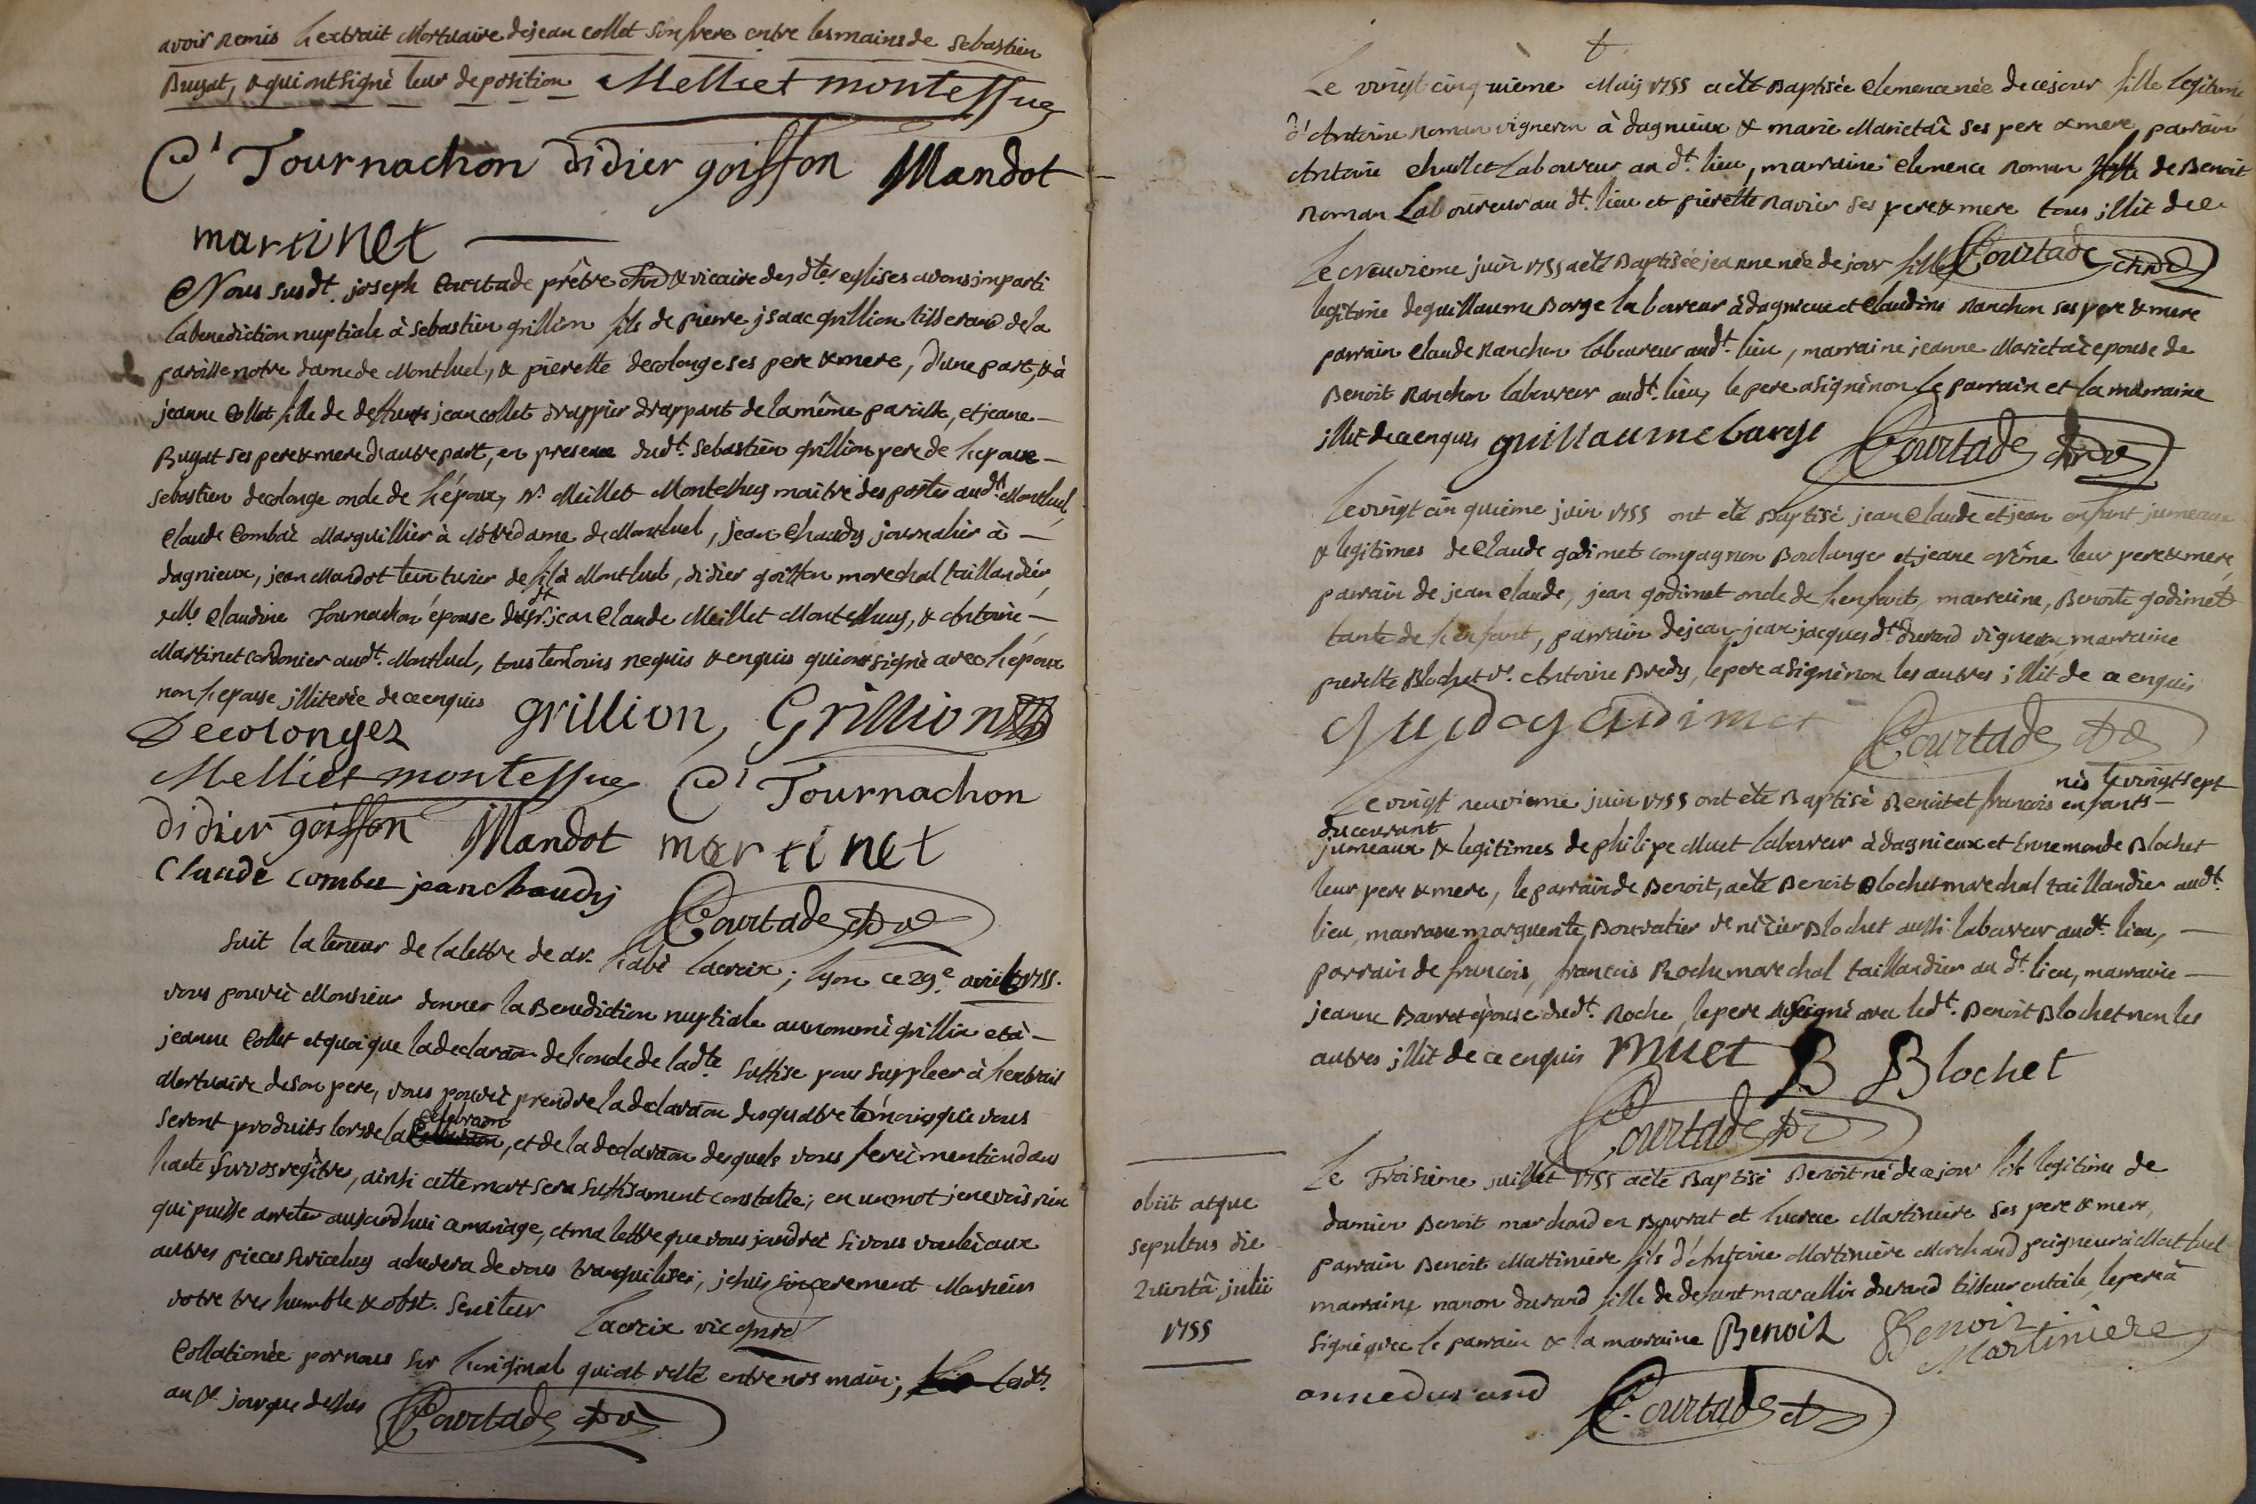 avoir remis l'extrait Mortuaire de jean collet son frere entre les mains de sebastien
Bugat, & qui ont signé leur deposition Melliet montessuy
Cl Tournachon didier goisson Mandot
martinet
Nous susdt. joseph Courtade prêtre & vicaire des dtes eglises avons imparti
la benediction nuptiale à sebastien grillion fils de pierre jsaac grillion tisserand de la
paroisse notre dame de Montluel, & pierette decolonge ses pere & mere, d'une part, & à
jeanne Collet fille de deffunt jean collet drappier drappant de la même paroisse, et jeane
Bugat ses pere & mere d'autre part, en presence dudt. sebastien grillion pere de l'epoux
sebastien decolonge oncle de l'époux, Sr. Meillet Montessuy maitre des postes audt. Montluel,
Claude Combet Marguillier à Nôtre dame de Montluel, jean Chaudy journalier à
dagnieux, jean Mandot teinturier de fil à Montluel, didier goisson marechal taillandier,
Claudine Tournachon épouse dudt sr. jean Claude Meillet Montessuy, & Antoine
Martinet cordonier audt. Montluel, tous temoins requis & enquis qui ont signé avec l'époux
non l'epouse jlliterée de ce enquis grillion, Grillion
Decolonges
Melliet montessuy Cl Tournachon
didier goisson Mandot martinet
Claude combet jean chaudy
Courtade
suit la teneur de la lettre de Mr. l'abé lacroix; lyon ce 29e. avril 1755.
vous pouvés Monsieur donner la Benediction nuptiale au nommé grillion et à
jeanne Collet et quoi que la declaraon de l'oncle de ladte suffise pour suppleer à l'extrait
Mortuaire de son pere, vous pouvés prendre la declaraon des quatre témoins qui vous
seront produits lors de la Celebraon, et de la declaraon desquels vous ferés mention dans
l'acte sur vos regîtres, ainsi cette mort sera suffisament constatée; en un mot je ne vois rien
qui puisse arreter aujourd'hui ce mariage, et ma lettre que vous joindrés si vous voulés aux
autres pieces sur iceluy achevera de vous tranquiliser; je suis sincerement Monsieur
votre tres humble & obst. serviteur lacroix vic
Collationée par nous sur l'original qui est resté entre nos mains;
an & jour que dessus Courtade
Le vingt cinquieme May 1755 a eté Baptisée Clemence née de ce jour fille legitime
d'Antoine Roman vigneron à dagnieux & marie Marietaî ses pere & mere, parrain
Antoine Laboureur au dt. lieu, marraine Clemence Roman fille de Benoit
Roman Laboureur au dt. lieu et pierette Ravier ses pere & mere tous jllit de ce
Courtade
Le neuvieme juin 1755 a eté Baptisée jeanne née de jour fille
legitime de guillaume Barge laboureur à dagnieux et Claudine Ranchon ses pere & mere
parrain Claude Ranchon laboureur audt. lieu, marraine jeanne Marietaî epouse de
Benoit Ranchon laboureur audt. lieu, le pere a signé non le parrain et la marraine
jllit de ce enquis guillaume barge Courtade
Le vingt cinquieme juin 1755 ont eté Baptisé jean Claude et jean enfant jumeaux
& legitimes de Claude godimet compagnon Boulanger et jeane leur pere & mere,
parrain de jean Claude, jean godimet oncle de l'enfant, marraine, Benoite godimet
tante de l'enfant, parrain de jean, jean jacques dt durand vigneron, marraine
pierette Blochet ve. Antoine Bredy, le pere a signé non les autres jllit de ce enquis
Courtade
nés le vingt sept
Le vingt neuvieme juin 1755 ont eté Baptisé Benoit et francois enfants
du courant
jumeaux & legitimes de philipe Muet laboureur à dagnieux et Ennemonde Blochet
leur pere & mere, le parrain de Benoit, a eté Benoit Blochet marechal taillandier audt.
lieu, marraine marguerite Bouvatier ve nizier Blochet aussi laboureur audt. lieu,
parrain de francois, francois Roche marechal taillandier au dt. lieu, marraine
jeanne Barret épouse dudt. Roche, le pere a signé avec ledt. Benoit Blochet non les
autres jllit de ce enquis muet B Blochet
Courtade
Le Troisieme juillet 1755 a eté Baptisé Benoit né de ce jour fils legitime de
damien Benoit marchand en Bourrat et lucrece Martiniere ses pere & mere,
parrain Benoit Martiniere fils d'Antoine Martiniere Marchand peigneur à Montluel
marraine nanon durand fille de defunt marcellin durand tisseur en toile, le pere à
signé avec le parrain & la marraine Benoit Benoit
Martiniere
anne durand Courtade
obiit atque
sepultus die
julii
1755